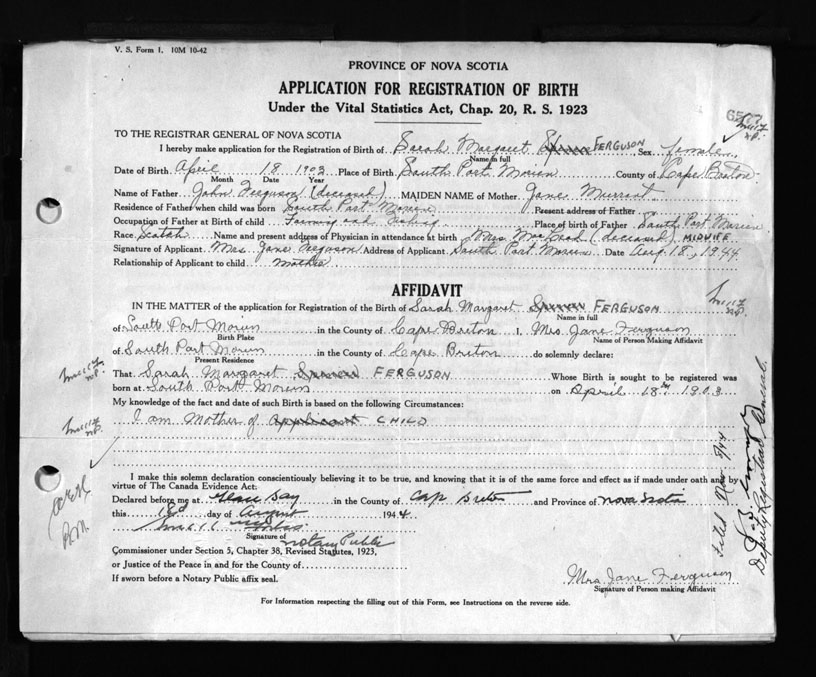 V. S. Form 1. 10M 10-42
PROVINCE OF NOVA SCOTIA
APPLICATION FOR REGISTRATION OF BIRTH
Under the Vital Statistics Act, Chap. 20, R. S. 1923
TO THE REGISTRAR GENERAL OF NOVA SCOTIA
I hereby make application for the Registration of Birth of Sarah Margaret FERGUSON Sex female
Name in full
Date of Birth April 18 1903 Place of Birth South Port Morien County of Cape Breton
Month Date Year
Name of Father John Ferguson (deceased) MAIDEN NAME of Mother Jane
Residence of Father when child was born South Port Morien Present address of Father
Occupation of Father at Birth of child Farming and Fishing Place of birth of Father South Port Morien
Race Scotch Name and present address of Physician in attendance at birth Mrs (deceased) MIDWIFE
Signature of Applicant Mrs. Jane Ferguson Address of Applicant South Port Morien Date Aug. 18, 1944
Relationship of Applicant to child mother
AFFIDAVIT
IN THE MATTER of the application for Registration of the Birth of Sarah Margaret FERGUSON
Name in full
of South Port Morien in the County of Cape Breton I, Mrs. Jane Ferguson
Birth Place Name of Person Making Affidavit
of South Port Morien in the County of Cape Breton do solemnly declare:
Present Residence
That Sarah Margaret FERGUSON Whose Birth is sought to be registered was
born at South Port Morien on April 18th 1903
My knowledge of the fact and date of such Birth is based on the following Circumstances:
I am Mother of applicant CHILD
I make this solemn declaration conscientiously believing it to be true, and knowing that it is of the same force and effect as if made under oath and by
virtue of The Canada Evidence Act:
Declared before me at Glace Bay in the County of Cap Breton and Province of Nova Scotia
this 18th day of August 1944
Signature of Notary Public
Commissioner under Section 5, Chapter 38, Revised Statutes, 1923,
or Justice of the Peace in and for the County of
If sworn before a Notary Public affix seal.
Mrs Jane Ferguson
Signature of Person making Affidavit
For Information respecting the filling out of this Form, see Instructions on the reverse side.
Filed Nov 9/44
Deputy Registrar General.